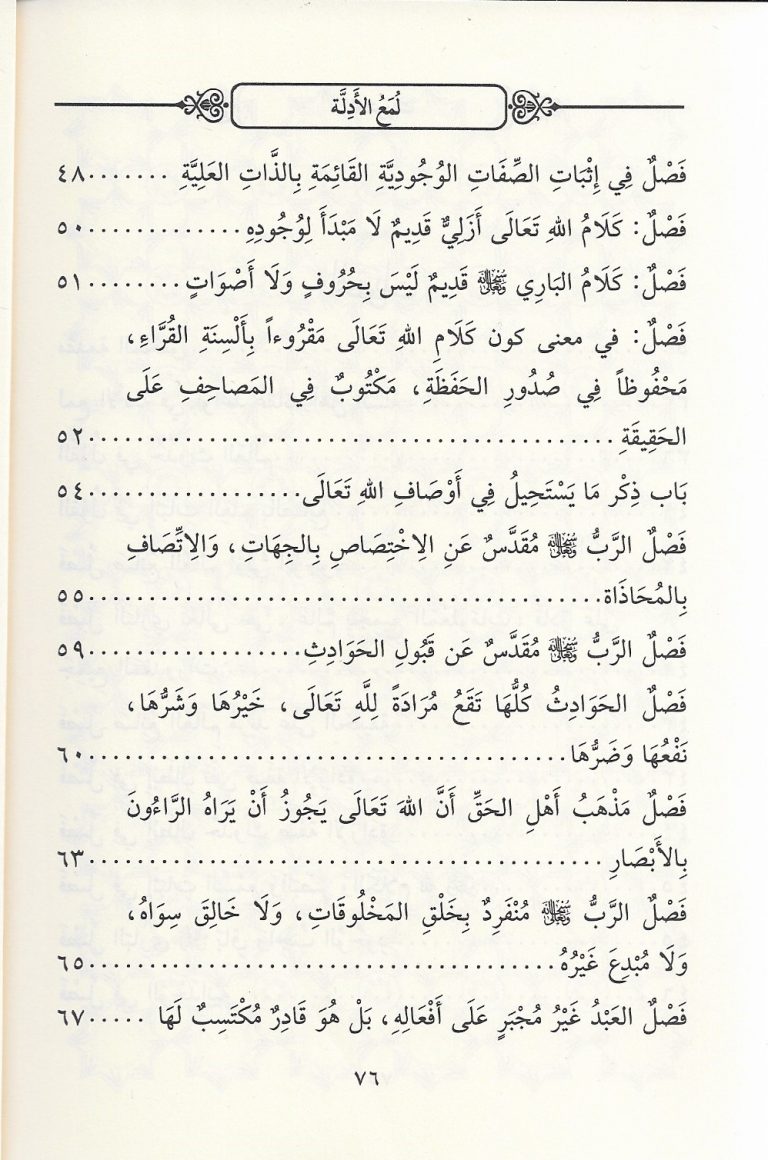 لُمَعُ الأَدِلَّة
فَصْلٌ فِي إِثْبَاتِ الصِّفَاتِ الوُجُودِيَّةِ القَائِمَةِ بِالذَّاتِ العَلِيَّةِ ........ ٤٨
فَصْلٌ: كَلَامُ اللهِ تَعَالَى أَزَلِيٌّ قَدِيمٌ لَا مَبْدَأَ لِوُجُودِهِ .............. ٥٠
فَصْلٌ: كَلَامُ البَارِي ﷾ قَدِيمٌ لَيْسَ بِحُرُوفٍ وَلَا أَصْوَاتٍ ......... ٥١
فَصْلٌ: في معنى كون كَلَامِ اللهِ تَعَالَى مَقْرُوءاً بِأَلْسِنَةِ القُرَّاءِ،
مَحْفُوظاً فِي صُدُورِ الحَفَظَةِ، مَكْتُوبٌ فِي المَصَاحِفِ عَلَى
الحَقِيقَةِ ............................................. ٥٢
بَاب ذِكْر مَا يَسْتَحِيلُ فِي أَوْصَافِ اللهِ تَعَالَى .................. ٥٤
فَصْلٌ الرَّبُّ ﷾ مُقَدَّسٌ عَنِ الِاخْتِصَاصِ بِالجِهَاتِ، وَالِاتِّصَافِ
بِالمُحَاذَاة ............................................ ٥٥
فَصْلٌ الرَّبُّ ﷾ مُقَدَّسٌ عَن قَبُولِ الحَوَادِثِ .................. ٥٩
فَصْلٌ الحَوَادِثُ كُلُّهَا تَقَعُ مُرَادَةً لِلَّهِ تَعَالَى، خَيْرُهَا وَشَرُّهَا،
نَفْعُهَا وَضَرُّهَا ......................................... ٦٠
فَصْلٌ مَذْهَبُ أَهْلِ الحَقِّ أَنَّ اللهَ تَعَالَى يَجُوزُ أَنْ يَرَاهُ الرَّاءُونَ
بِالأَبْصَارِ ............................................ ٦٣
فَصْلٌ الرَّبُّ ﷾ مُنْفَرِدٌ بِخَلْقِ المَخْلُوقَاتِ، وَلَا خَالِقَ سِوَاهُ،
وَلَا مُبْدِعَ غَيْرُهُ ........................................ ٦٥
فَصْلٌ العَبْدُ غَيْرُ مُجْبَرٍ عَلَى أَفْعَالِهِ، بَلْ هُوَ قَادِرٌ مُكْتَسِبٌ لَهَا ..... ٦٧
٧٦